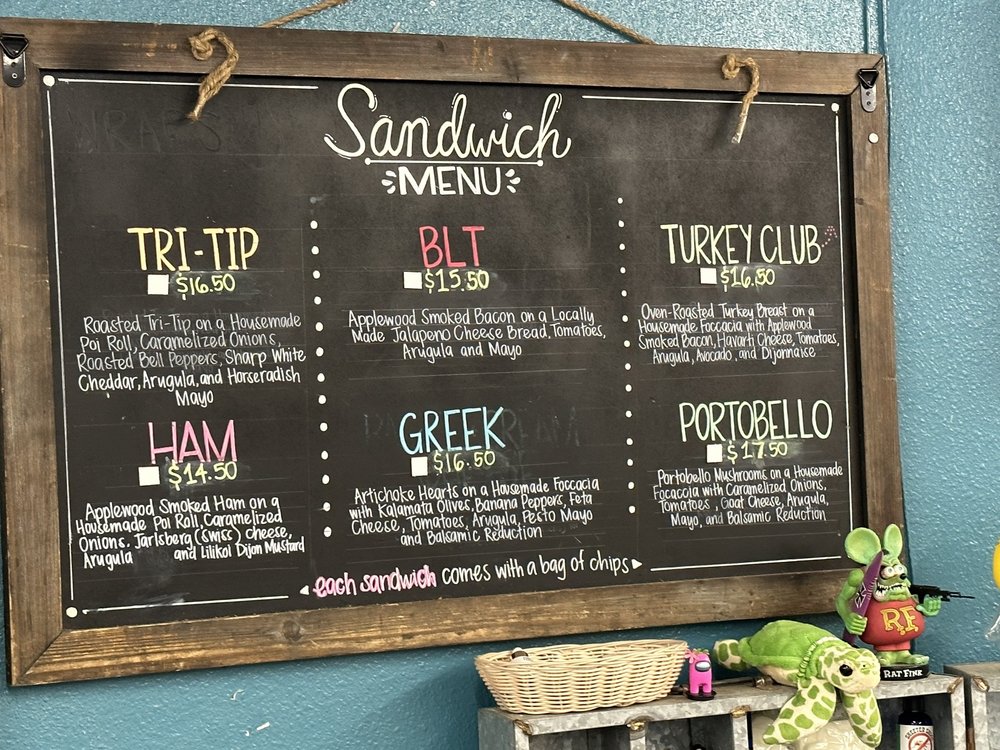 Sandwich
MENU
TRI-TIP
$16.50
Roasted Tri-Tip on a Housemade
Poi Roll, Caramelized Onions,
Roasted Bell Peppers, Sharp White
Cheddar, Arugula, and Horseradish
Mayo
HAM
$14.50
Applewood Smoked Ham on a
Housemade Poi Roll, Caramelized
Onions, Jarlsberg (Swiss) cheese,
Arugula and Lilikoi Dijon Mustard
BLT
$15.50
Applewood Smoked Bacon on a Locally
Made Jalapeno Cheese Bread, Tomatoes,
Arugula and Mayo
GREEK
$16.50
Artichoke Hearts on a Housemade Foccacia
with Kalamata Olives, Banana Peppers, Feta
Cheese, Tomatoes, Arugula, Pesto Mayo
and Balsamic Reduction
TURKEY CLUB
$16.50
Oven-Roasted Turkey Breast on a
Housemade Foccacia with Applewood
Smoked Bacon, Havarti Cheese, Tomatoes,
Arugula, Avocado, and Dijonnaise
PORTOBELLO
$17.50
Portobello Mushrooms on a Housemade
Focaccia with Caramelized Onions,
Tomatoes, Goat Cheese, Arugula,
Mayo, and Balsamic Reduction
each sandwich comes with a bag of chips
R.F.
RAT FINK